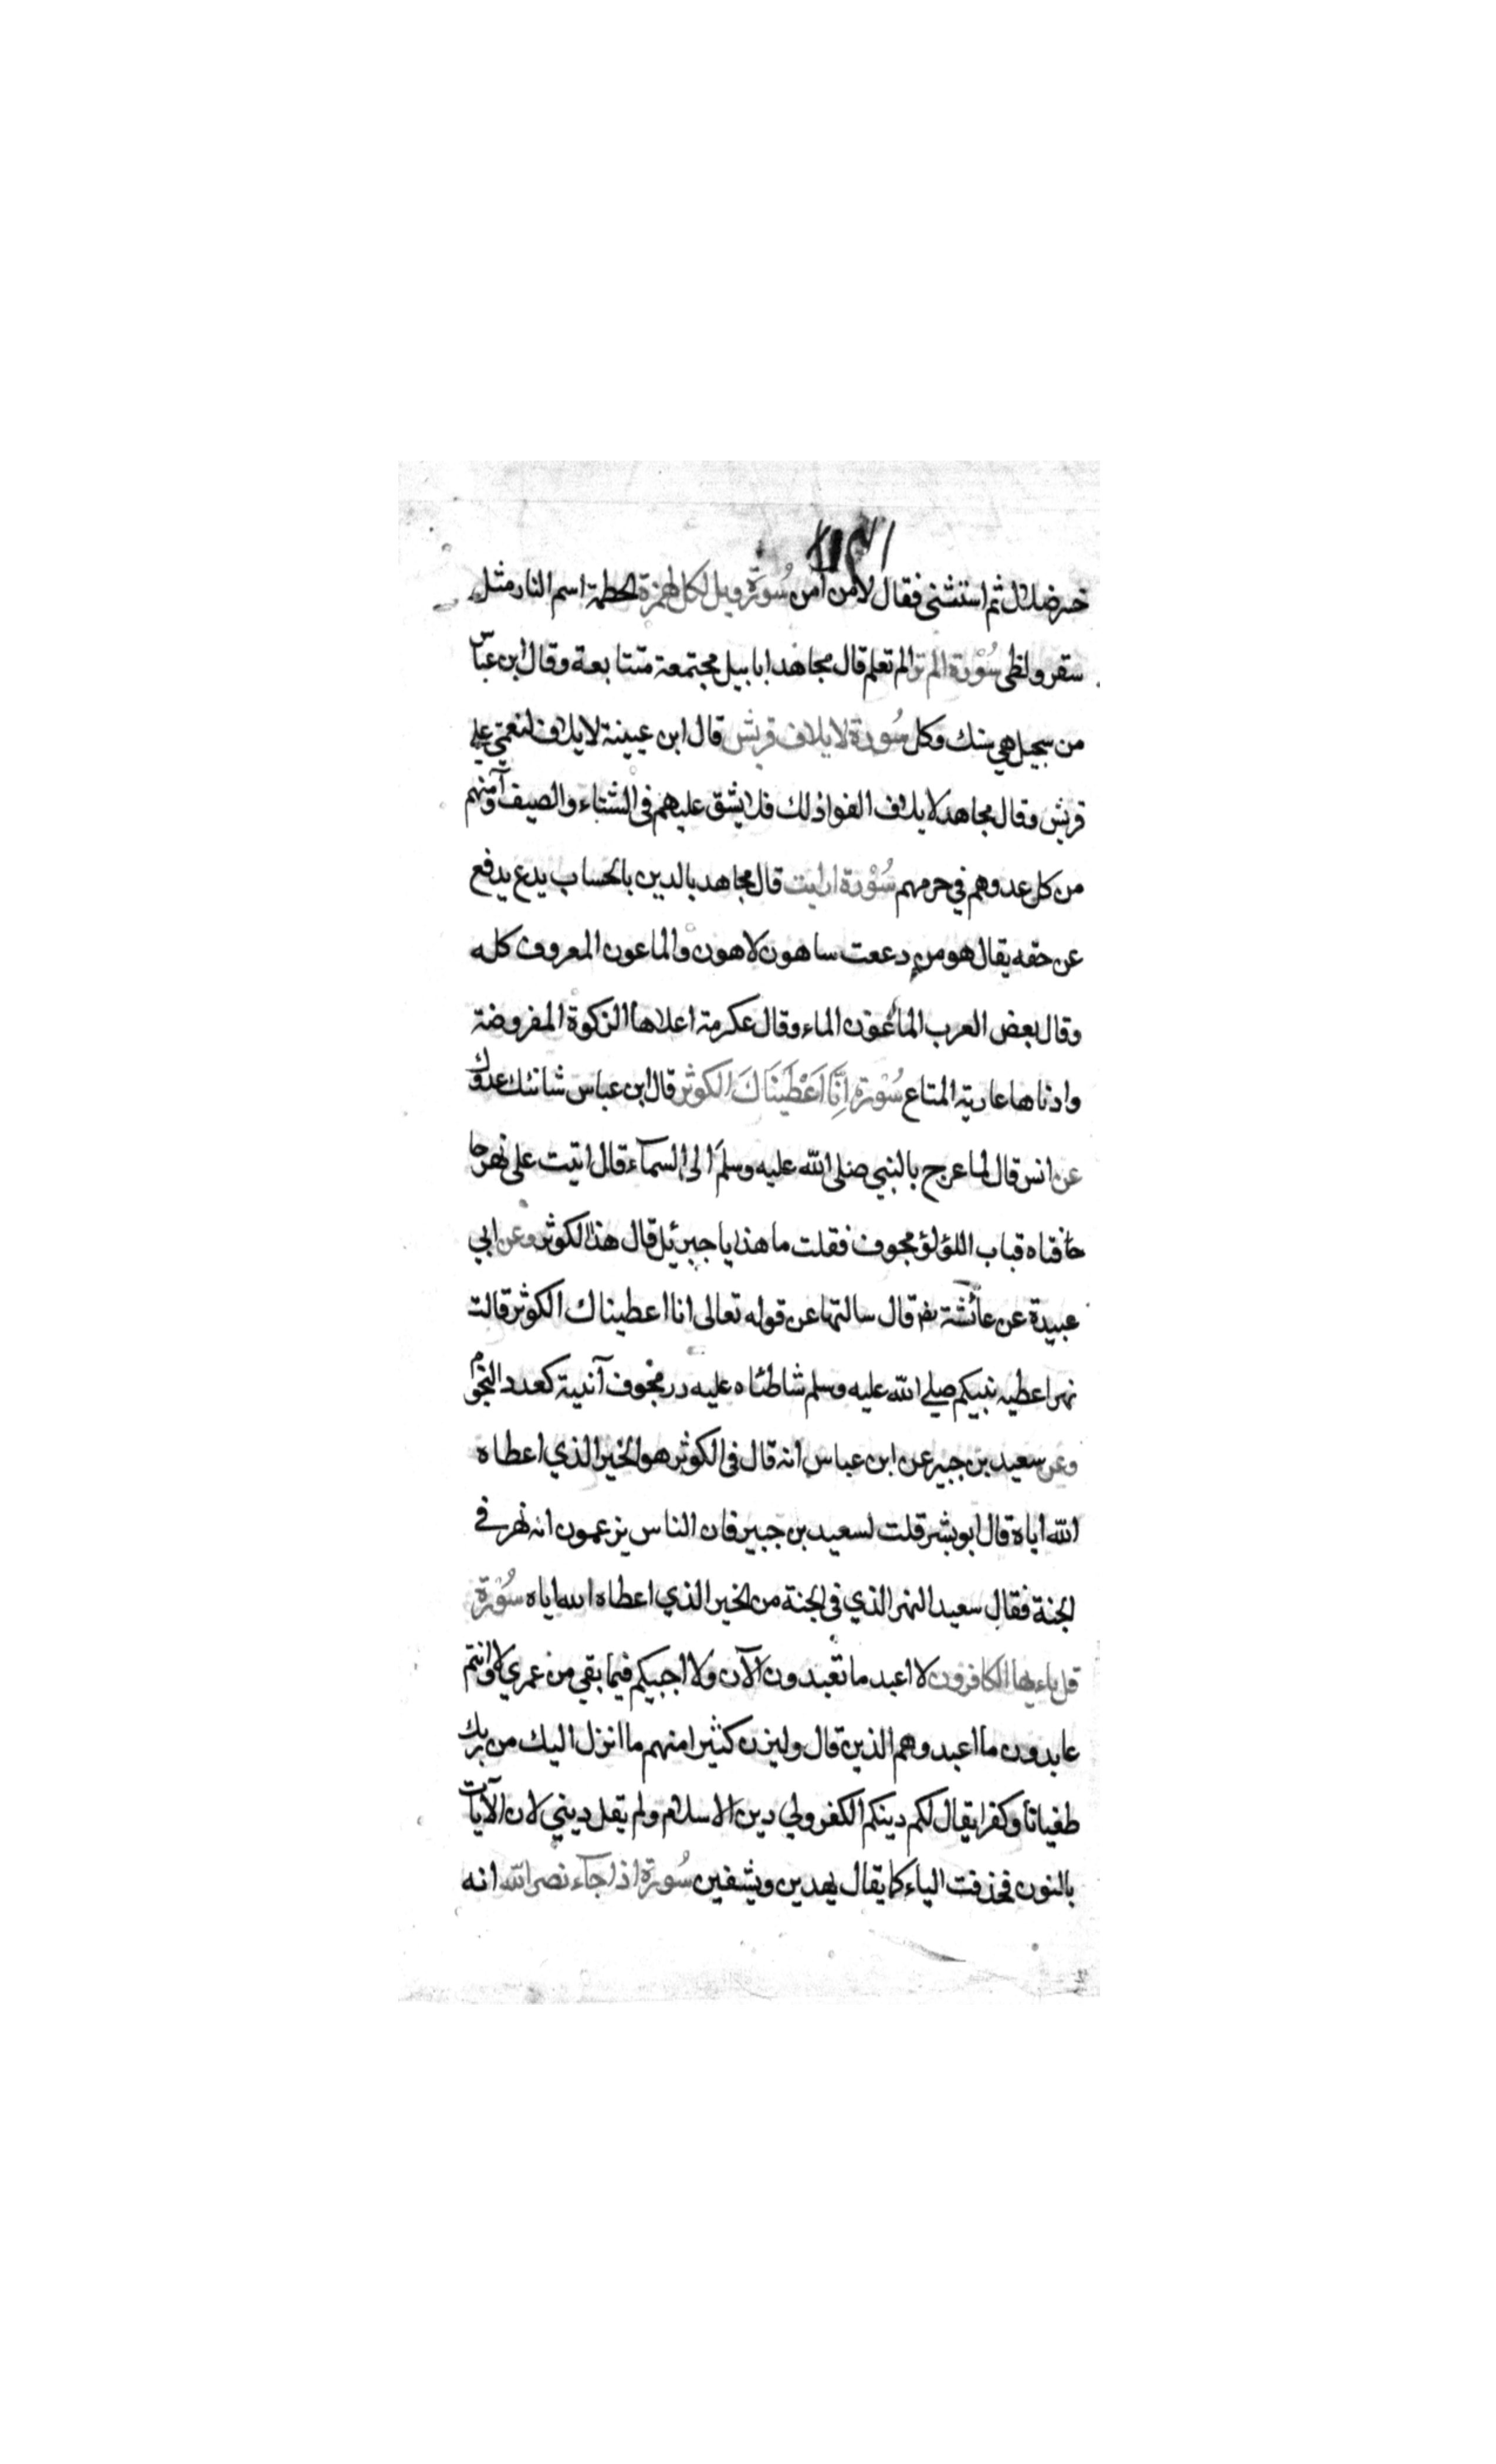 خسر ضلال ثم استثنى فقال لا من امن سُورة ويل لكل همزة الحطمة اسم النار مثل
سقر ولظى سُوْرة الم تر الم تعلم قال مجاهد ابابيل مجتمعة متتابعة وقال ابن عباس
من سجيل هي سنك وكل سُورة لايلاف قريش قال ابن عيينة لايلاف لنعمتي على
قريش وقال مجاهد لايلاف الفوا ذلك فلا يشق عليهم في الشتاء والصيف وآمنهم
من كل عدوهم في حرمهم سُوْرة ارايت قال مجاهد بالدين بالحساب يدع يدفع
عن حقه يقال هو من دععت ساهون لاهون والماعون المعروف كله
وقال بعض العرب الماعون الماء وقال عكرمة اعلاها الزكوة المفروضة
وادناها عارية المتاع سُوْرة اِنَّا اَعْطَيْنَاكَ الكوثر قال ابن عباس شانئك عدوك
عن انس قال لما عرج بالنبي صلى الله عليه وسلم الى السمآء قال اتيت على نهر حا
حافتاه قباب اللؤلؤ مجوف فقلت ما هذا يا جبرئيل قال هذا الكوثر وعن ابي
عبيدة عن عائشة رضـ قال سالتها عن قوله تعالى انا اعطيناك الكوثر قالت
نهر اعطيه نبيكم صلى الله عليه وسلم شاطئاه عليه در مجوف آنيته كعدد النجوم
وعن سعيد بن جبير عن ابن عباس انه قال في الكوثر هو الخير الذي اعطاه
الله اياه قال ابو بشر قلت لسعيد بن جبير فان الناس يزعمون انه نهر في
الجنة فقال سعيد النهر الذي في الجنة من الخير الذي اعطاه الله اياه سُوْرة
قل ياءيها الكافرون لا اعبد ما تعبدون الآن ولا اجيبكم فيما بقي من عمري ولا انتم
عابدون ما اعبد وهم الذين قال وليزيدن كثيرا منهم ما انزل اليك من ربك
طغيانا وكفرا يقال لكم دينكم الكفر ولي دين الاسلام ولم يقل ديني لان الآيات
بالنون فحذفت الياء كما يقال يهدين ويشفين سُورة اذا جآء نصر الله انه